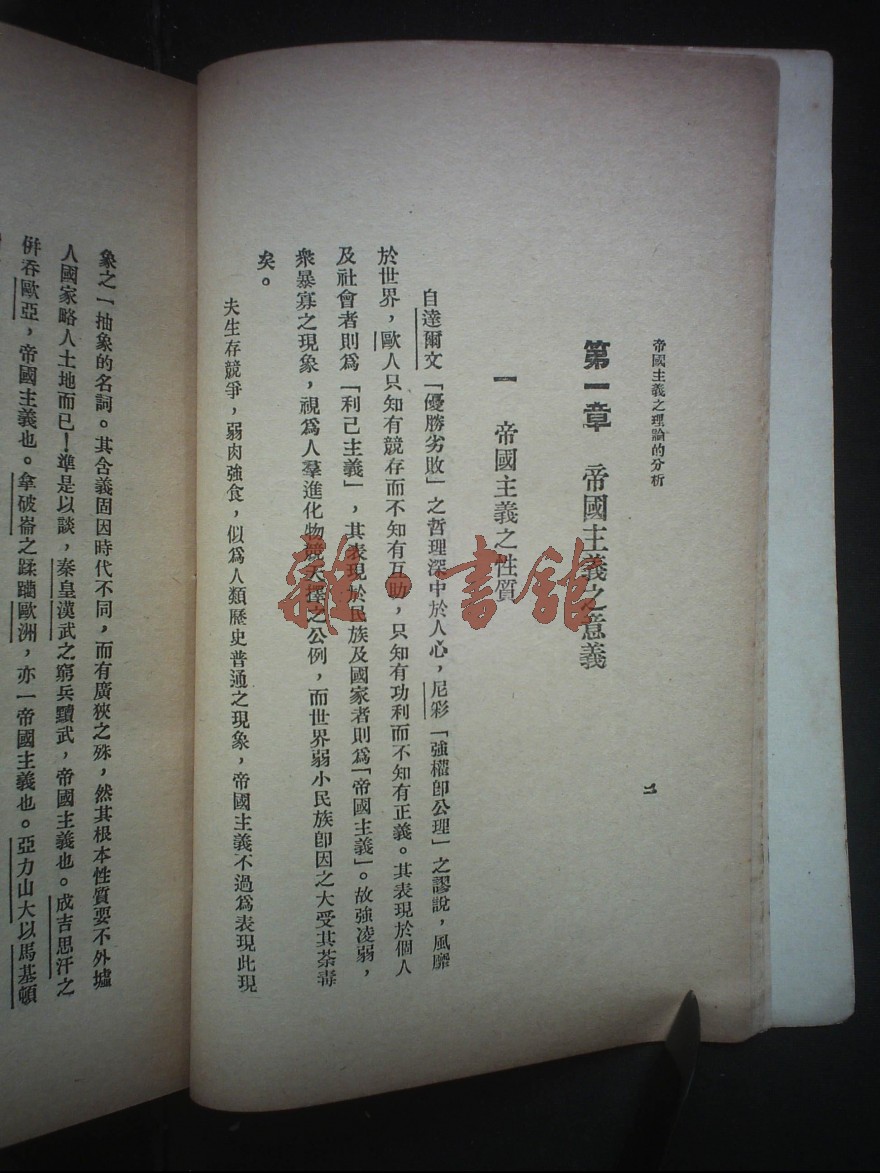 帝國主義之理論的分析
第一章 帝國主義之意義
一 帝國主義之性質
自達爾文「優勝劣敗」之哲理深中於人心，尼彩「強權卽公理」之謬說，風靡
於世界，歐人只知有競存而不知有互助，只知有功利而不知有正義。其表現於個人
及社會者則爲「利己主義」，其表現於民族及國家者則爲「帝國主義」。故強凌弱，
衆暴寡之現象，視爲人羣進化物競天擇之公例，而世界弱小民族卽因之大受其荼毒
矣。
夫生存競爭，弱肉強食，似爲人類歷史普通之現象，帝國主義不過爲表現此現
象之一抽象的名詞。其含義固因時代不同，而有廣狹之殊，然其根本性質要不外墟
人國家略人土地而已！準是以談，秦皇漢武之窮兵黷武，帝國主義也。成吉思汗之
併吞歐亞，帝國主義也。拿破崙之蹂躪歐洲，亦一帝國主義也。亞力山大以馬基頓
雜·書館